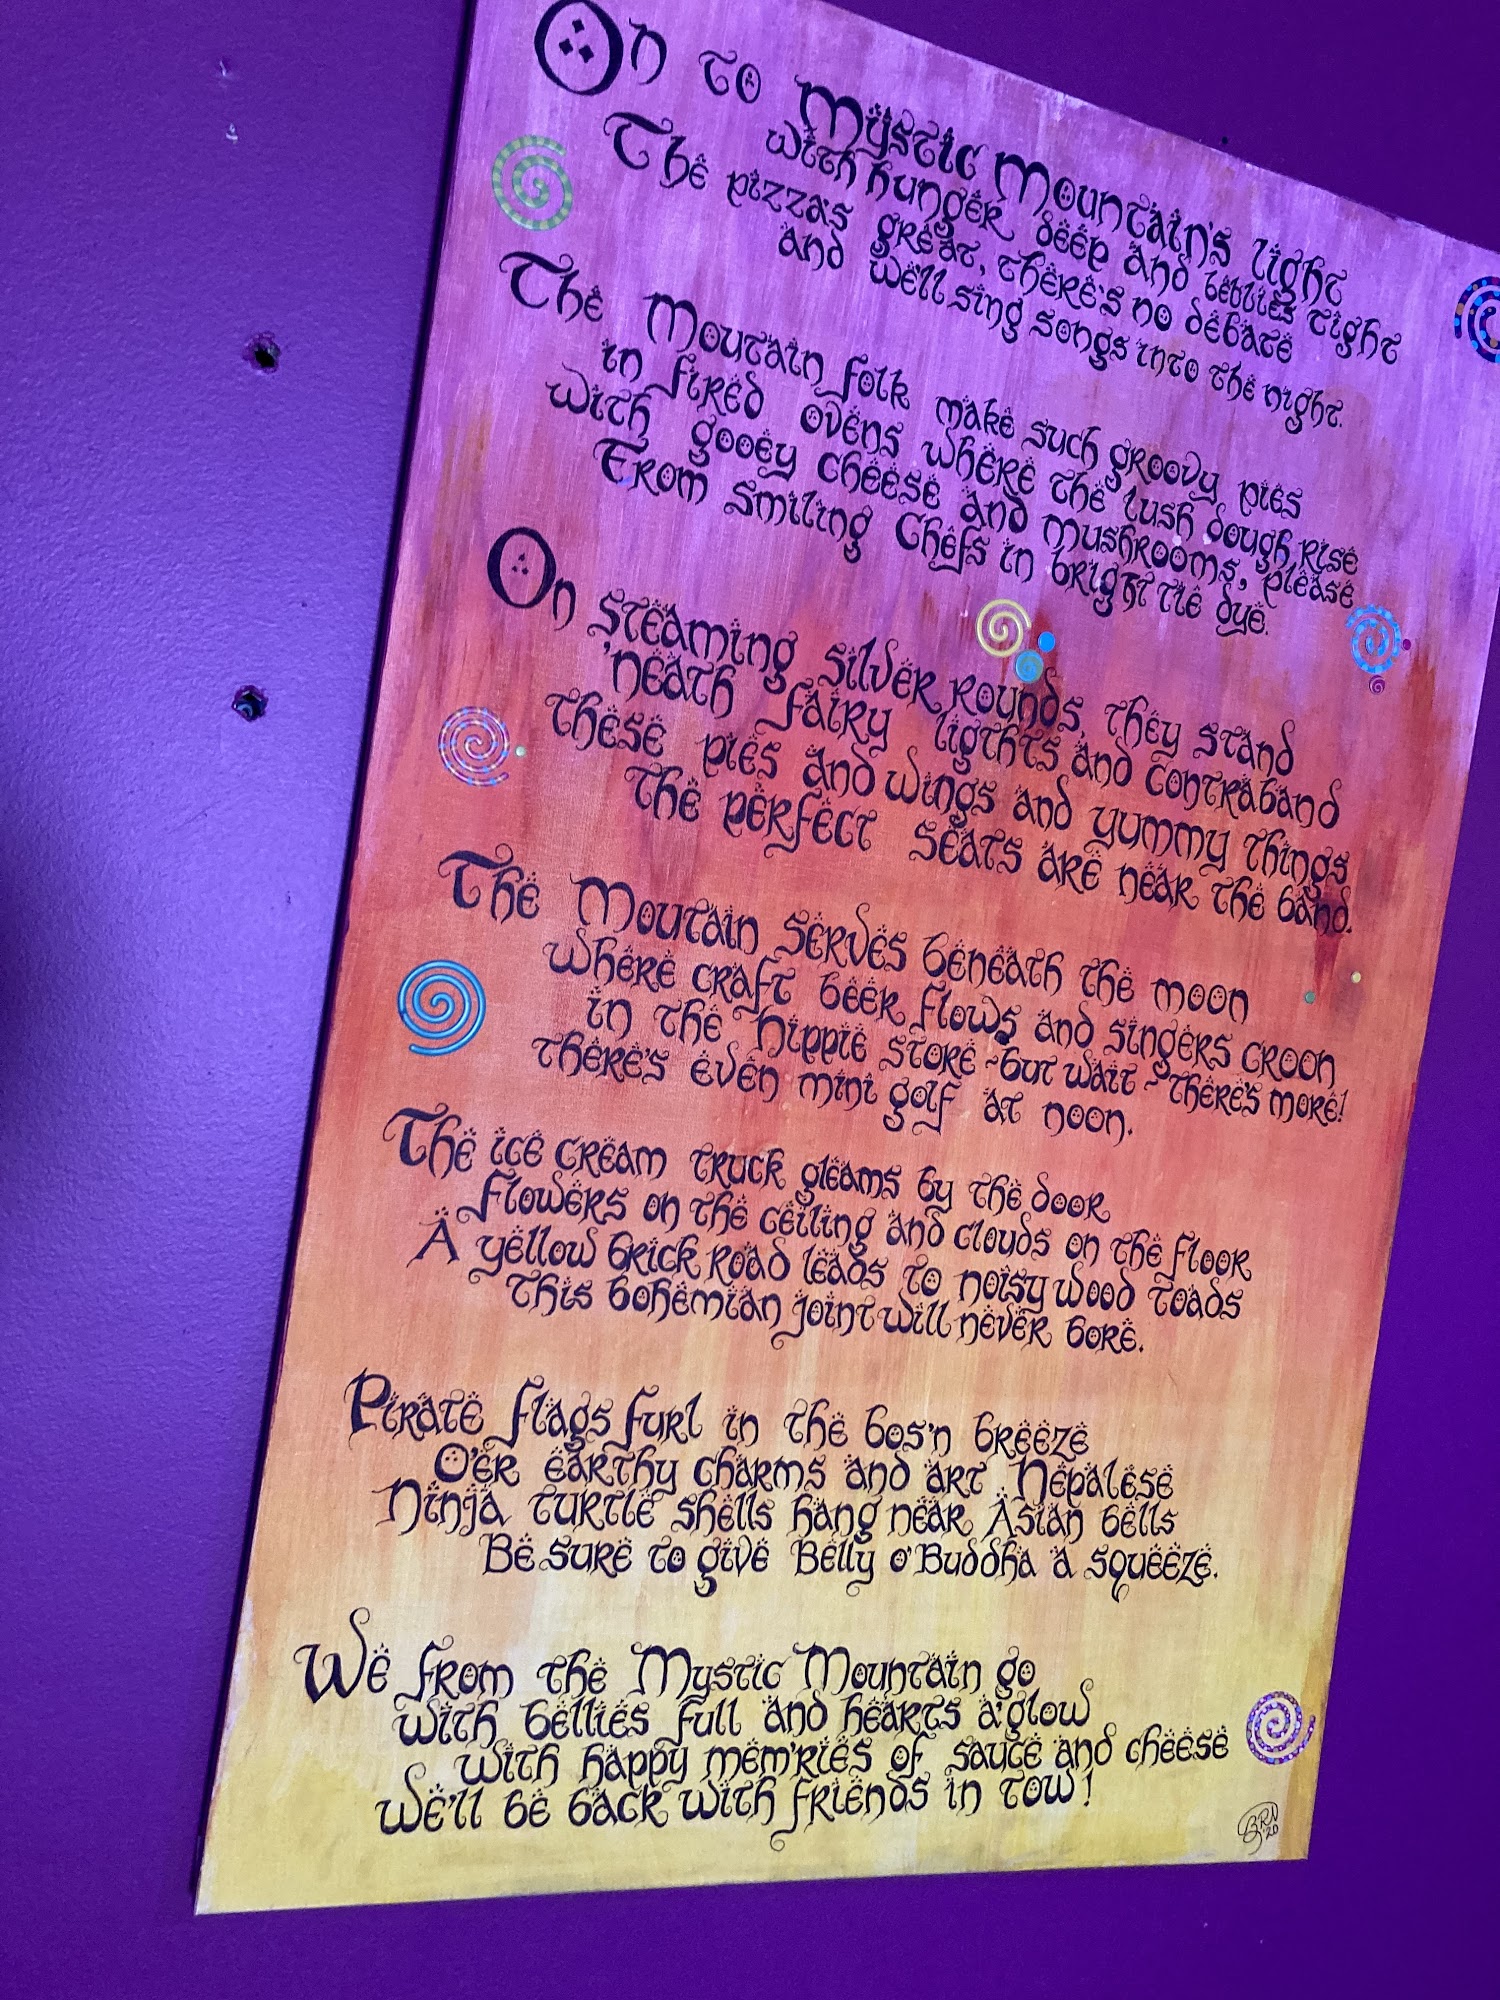 On to Mystic Mountain's light
with hunger deep and bellies tight
The pizza's great, there's no debate
and we'll sing songs into the night.
The Moutain folk make such groovy pies
in fired ovens where the lush dough rise
with gooey cheese and mushrooms, please
From smiling Chefs in bright tie dye.
On steaming silver rounds, they stand
'neath fairy lights and contraband
these pies and wings and yummy things
the perfect seats are near the band.
The Moutain serves beneath the moon
where craft beer flows and singers croon
in the hippie store ~ but wait ~ there's more!
there's even mini golf at noon.
The ice cream truck gleams by the door
Flowers on the ceiling and clouds on the floor
A yellow brick road leads to noisy wood toads
This bohemian joint will never bore.
Pirate flags furl in the bos'n breeze
O'er earthy charms and art Nepalese
Ninja turtle shells hang near Asian bells
Be sure to give Belly o'Buddha a squeeze.
We from the Mystic Mountain go
with bellies full and hearts a'glow
with happy mem'ries of sauce and cheese
We'll be back with friends in tow!
BRN
'20